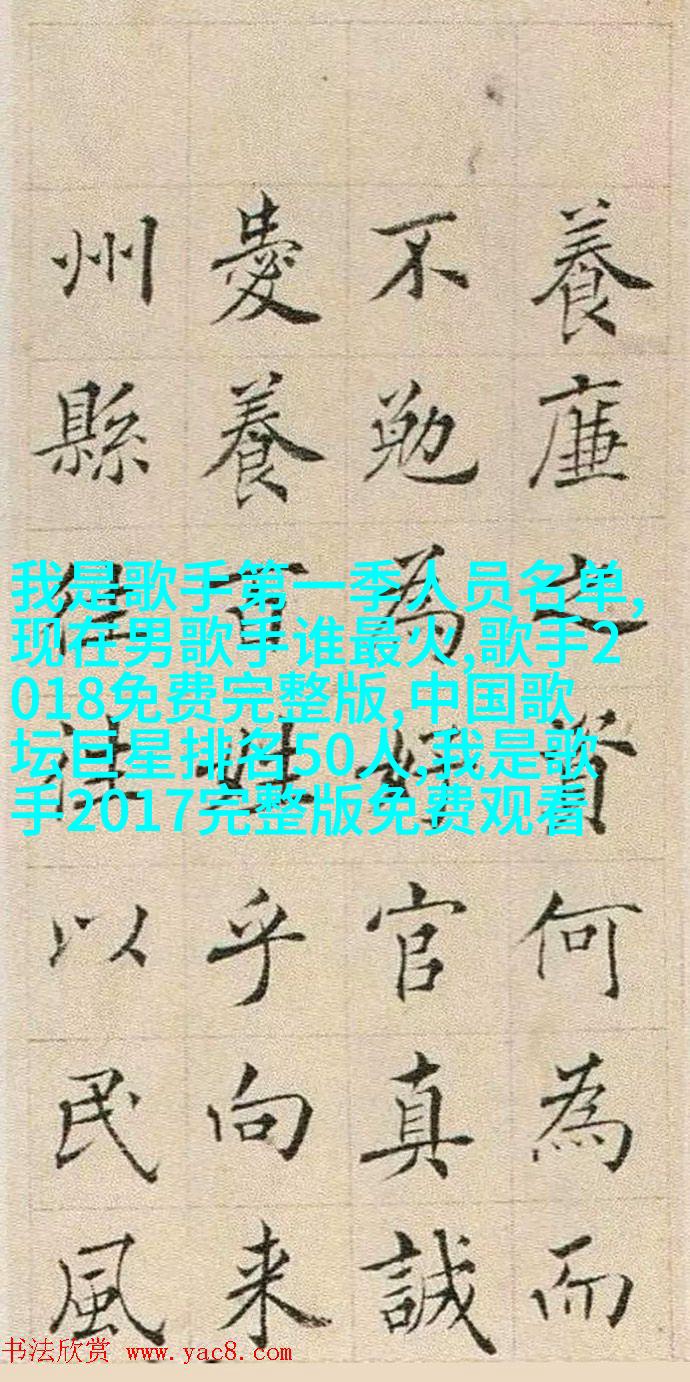 養廉之資何為而
不勉為好官真誠
愛養百姓乎向来
州縣往往以民風
我是歌手第一季人员名单,
现在男歌手谁最火,歌手2
018免费完整版,中国歌
坛巨星排名50人,我是歌
手2017完整版免费观看
书法欣赏 www.yac8.com